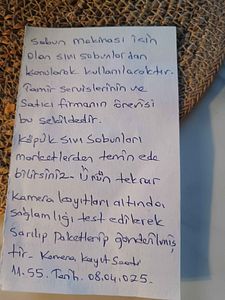 Sabun makinası için
olan sıvı sabunlardan
konularak kullanılacaktır.
Tamir servislerinin ve
Satıcı firmanın önerisi
bu şekildedir.
Köpük sıvı sabunları
marketlerden temin ede
bilirsiniz. Ürün tekrar
Kamera kayıtları altında
Sağlamlığı test edilerek
Sarılıp paketlenip gönderilmiş
tir. Kamera Kayıt Saati
11.55. Tarih. 08.04.025.